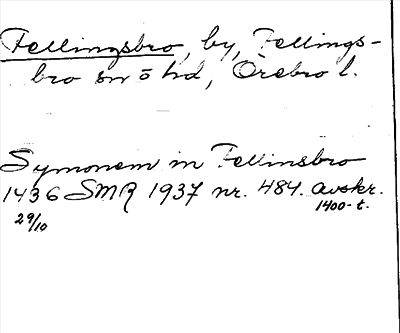 Fellingsbro, by, Fellings-
bro sn o hd, Örebro l.
Symonem in Fellinsbro
1436 SMR 1937 nr. 484. avskr.
29/10 1400-t.